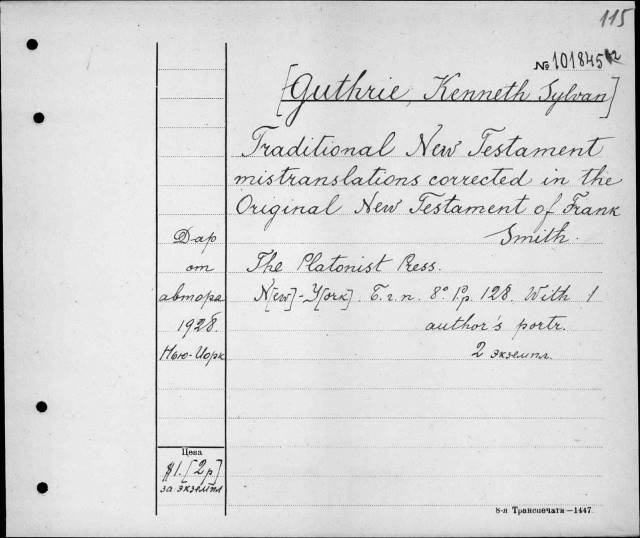 115
№ 101845 12
[Guthrie, Kenneth Sylvan]
Traditional New Testament
mistranslations corrected in the
Original New Testament of Frank
Smith.
The Platonist Press.
N[ew]-Y[ork]. S. a. n. 8º. Pp. 128. With 1
author's portr.
2 экземпл.
Дар
от
автора
1928.
Нью-Иорк
Цена
$1. [2 р]
за экземпл
8-я Транспечати—1447.